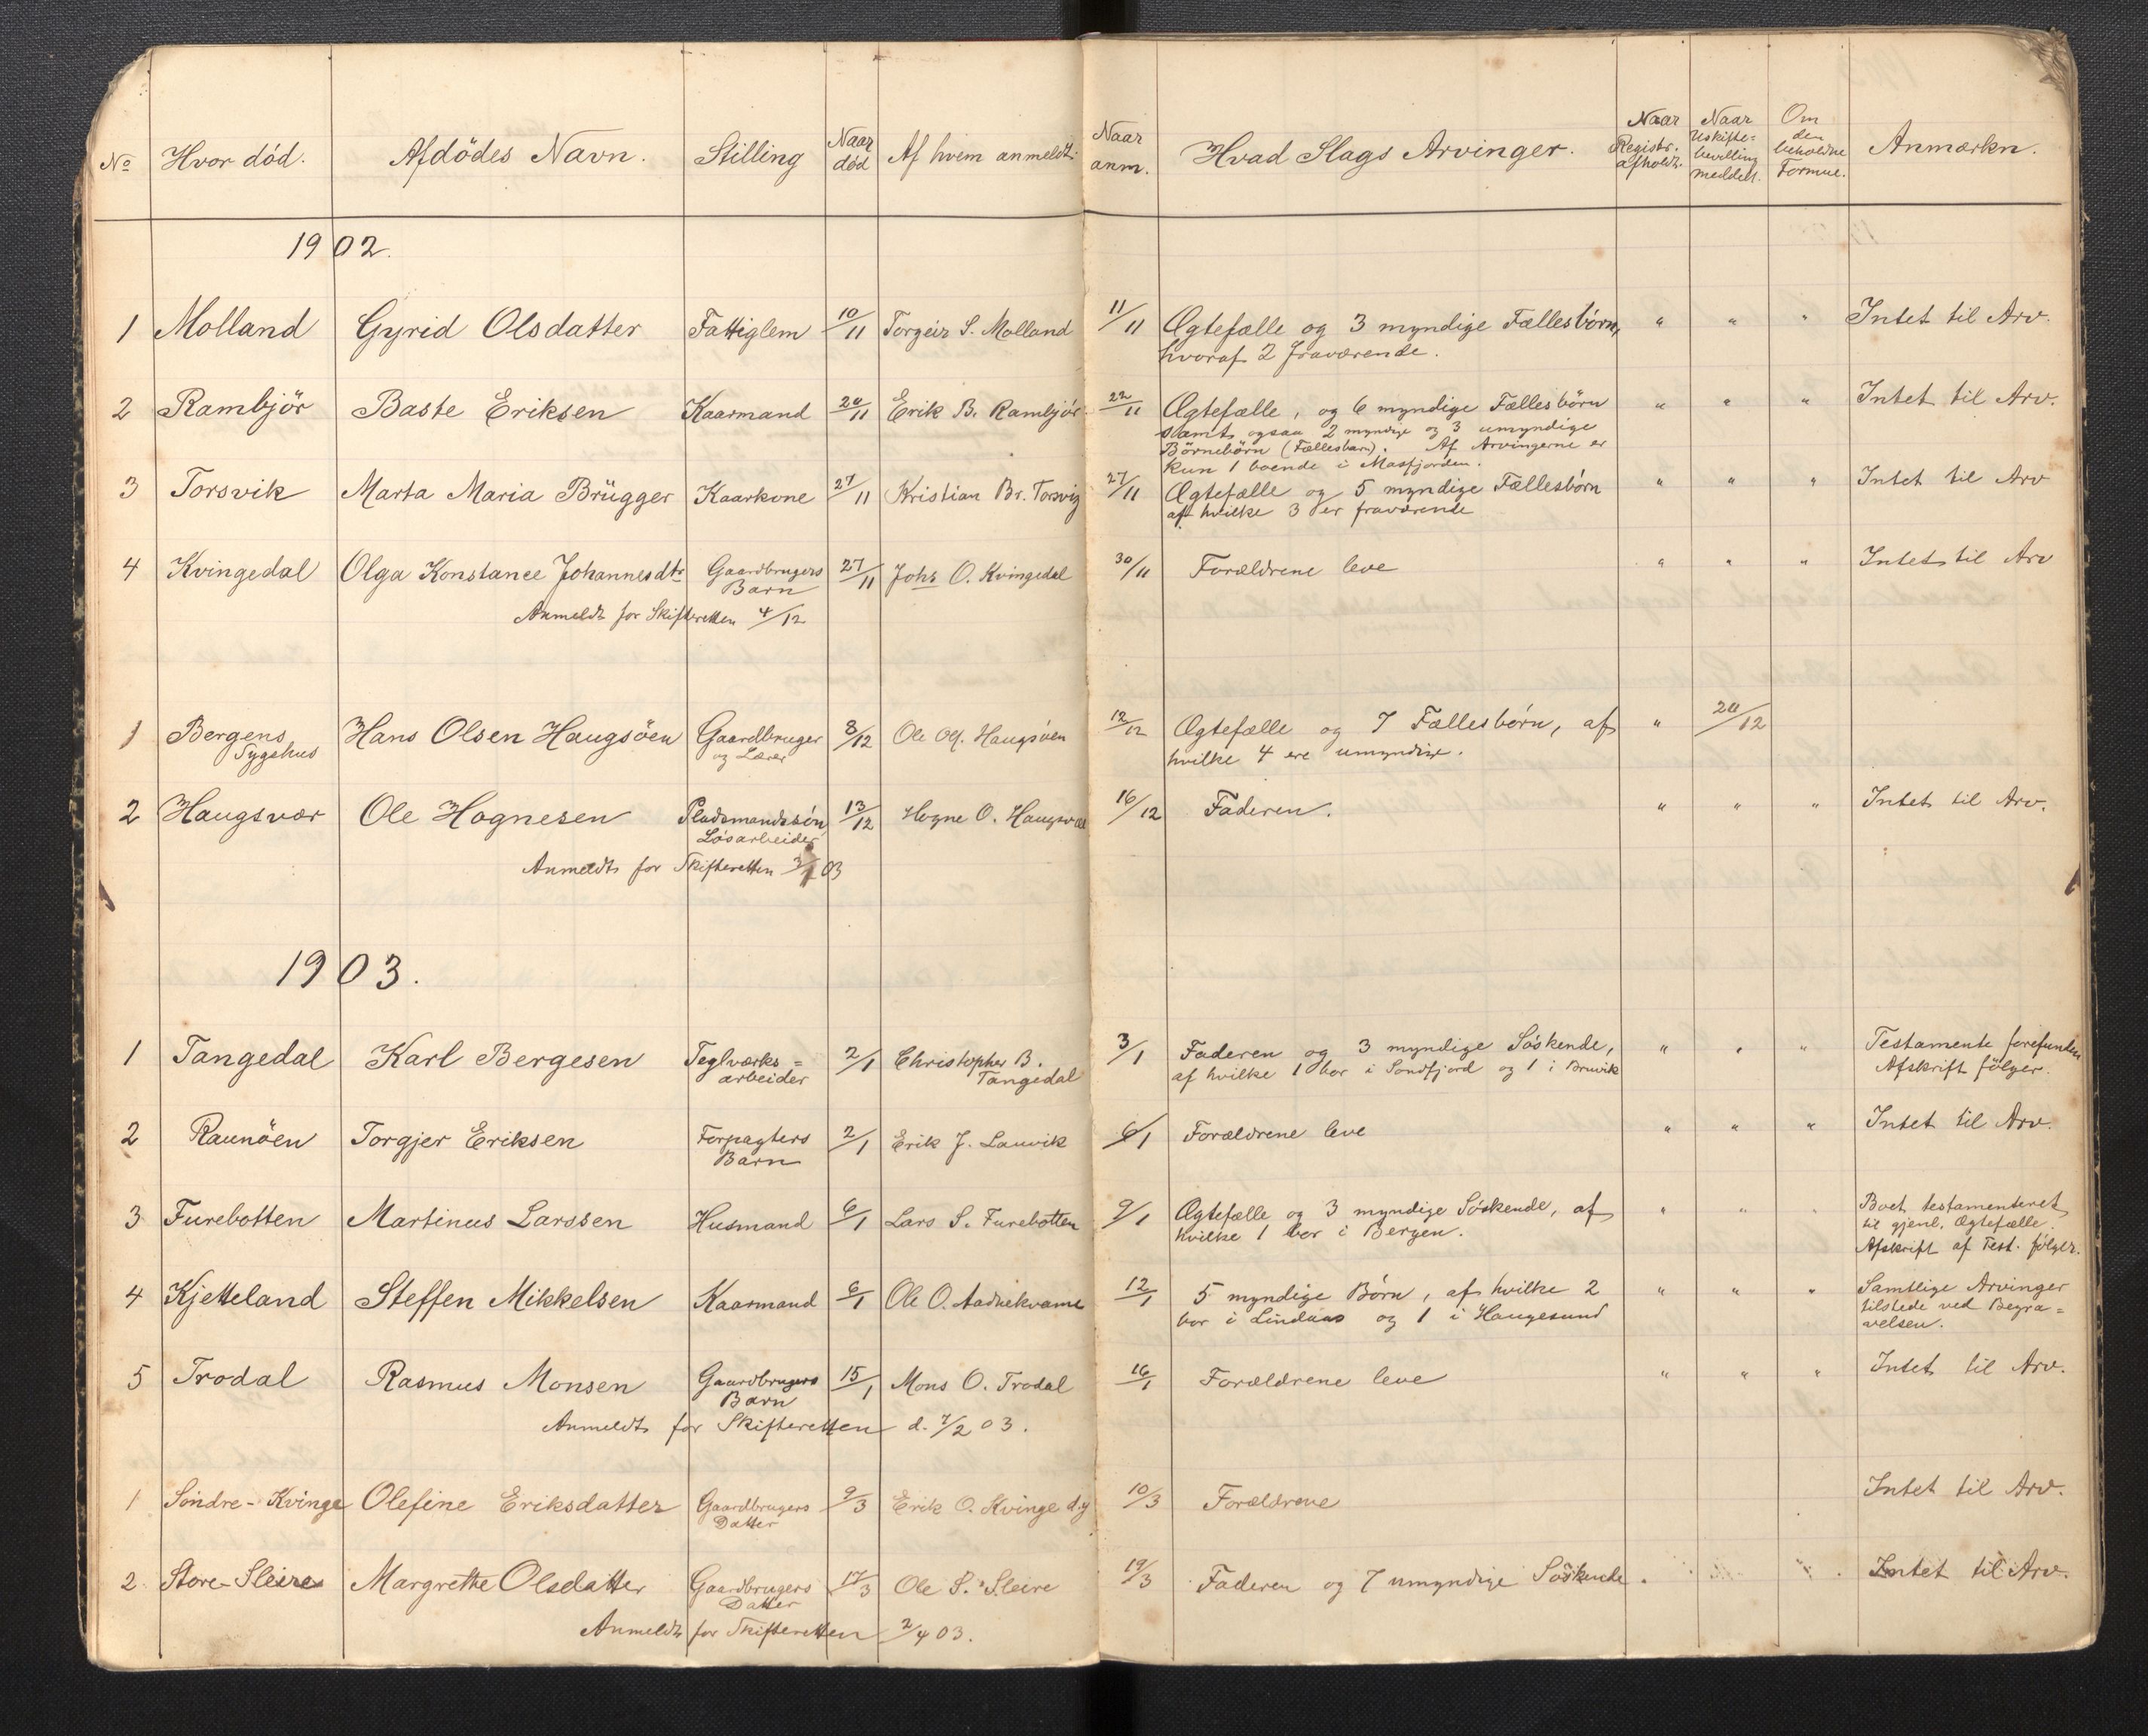 No Hvor död. Afdödes Navn. Stilling Naar död Af hvem anmeldt. Naar anm. Hvad Slags Arvinger. Naar Registr. afholdt. Naar Uskifte-bevilling meddelt. Om den beholdne Formue. Anmærkn.
1902.
1 Molland Gyrid Olsdatter Fattiglem 10/11 Torgeir S. Molland 11/11 Ægtefælle og 3 myndige Fællesbörn, " " " Intet til Arv.
hvoraf 2 fraværende.
2 Rambjör Baste Eriksen Kaarmand 20/11 Erik B. Rambjör 22/11 Ægtefælle, og 6 myndige Fællesbörn " " " Intet til Arv.
samt ogsaa 2 myndige og 3 umyndige
Börnebörn (Fællesbarn). Af Arvingerne er
kun 1 boende i Masfjorden.
3 Torsvik Marta Maria Brügger Kaarkone 27/11 Kristian Br. Torsvig 27/11 Ægtefælle og 5 myndige Fællesbörn " " " Intet til Arv
af hvilke 3 er fraværende
4 Kvingedal Olga Konstance Johannesdtr Gaardbrugers 27/11 Johs O. Kvingedal 30/11 Forældrene leve " " " Intet til Arv
Barn
Anmeldt for Skifteretten 4/12
1 Bergens Hans Olsen Haugsöen Gaardbruger 8/12 Ole Ol. Haugsöen 12/12 Ægtefælle og 7 Fællesbörn, af " 20/12
Sygehus og Lærer hvilke 4 ere umyndige.
2 Haugsvær Ole Hognesen Pladsmandssön 13/12 Hogne O. Haugsvær 16/12 Faderen. " " " Intet til Arv.
Lösarbeider
Anmeldt for Skifteretten 3/1 03
1903.
1 Tangedal Karl Bergesen Teglværks= 2/1 Christopher B. 3/1 Faderen og 3 myndige Söskende, " " " Testamente forefunden
arbeider Tangedal af hvilke 1 bor i Sondfjord og 1 i Bruvik Afskrift fölger.
2 Raunöen Torgjer Eriksen Forpagters 2/1 Erik J. Lauvik 6/1 Forældrene leve " " " Intet til Arv.
Barn
3 Furebotten Martinus Larssen Husmand 6/1 Lars S. Furebotten 9/1 Ægtefælle og 3 myndige Söskende, af " " " Boet testamenteret
hvilke 1 bor i Bergen. til gjenl. Ægtefælle.
Afskrift af Test. fölger.
4 Kjetteland Steffen Mikkelsen Kaarmand 6/1 Ole O. Aadnekvame 12/1 5 myndige Börn, af hvilke 2 " " " Samtlige Arvinger
bor i Lindaas og 1 i Haugesund tilstede ved Begra=
velsen.
5 Trodal Rasmus Monsen Gaardbrugers 15/1 Mons O. Trodal 16/1 Forældrene leve " " " Intet til Arv.
Barn
Anmeldt for Skifteretten d. 7/2 03.
1 Söndre-Kvinge Olefine Eriksdatter Gaardbrugers 9/3 Erik O. Kvinge d.y 10/3 Forældrene Intet til Arv.
Datter
2. Store-Sleire Margrethe Olsdatter Gaardbrugers 17/3 Ole S. Sleire 19/3 Faderen og 7 umyndige Söskende. Intet til Arv.
Datter
Anmeldt for Skifteretten 2/4 03.